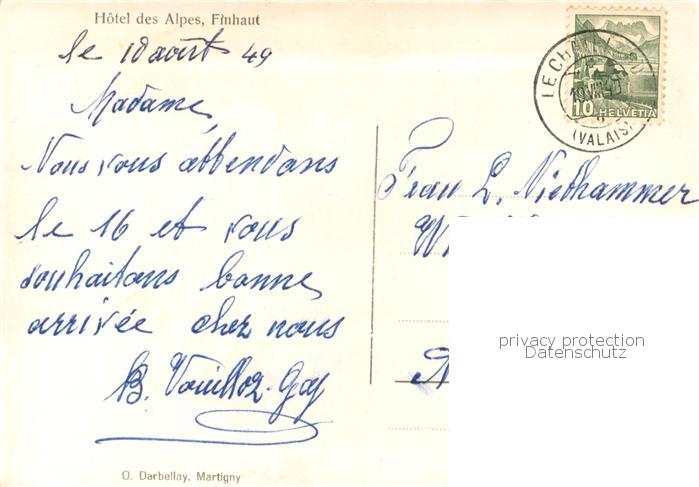 Hôtel des Alpes, Finhaut
le 10 août 49
Madame,
Nous vous attendons
le 16 et vous
souhaitons bonne
arrivée chez nous
B. Vouilloz-Gay
O. Darbellay, Martigny
LE CHÂTELARD
(VALAIS)
10 HELVETIA
Frau L. Niethammer
privacy protection
Datenschutz